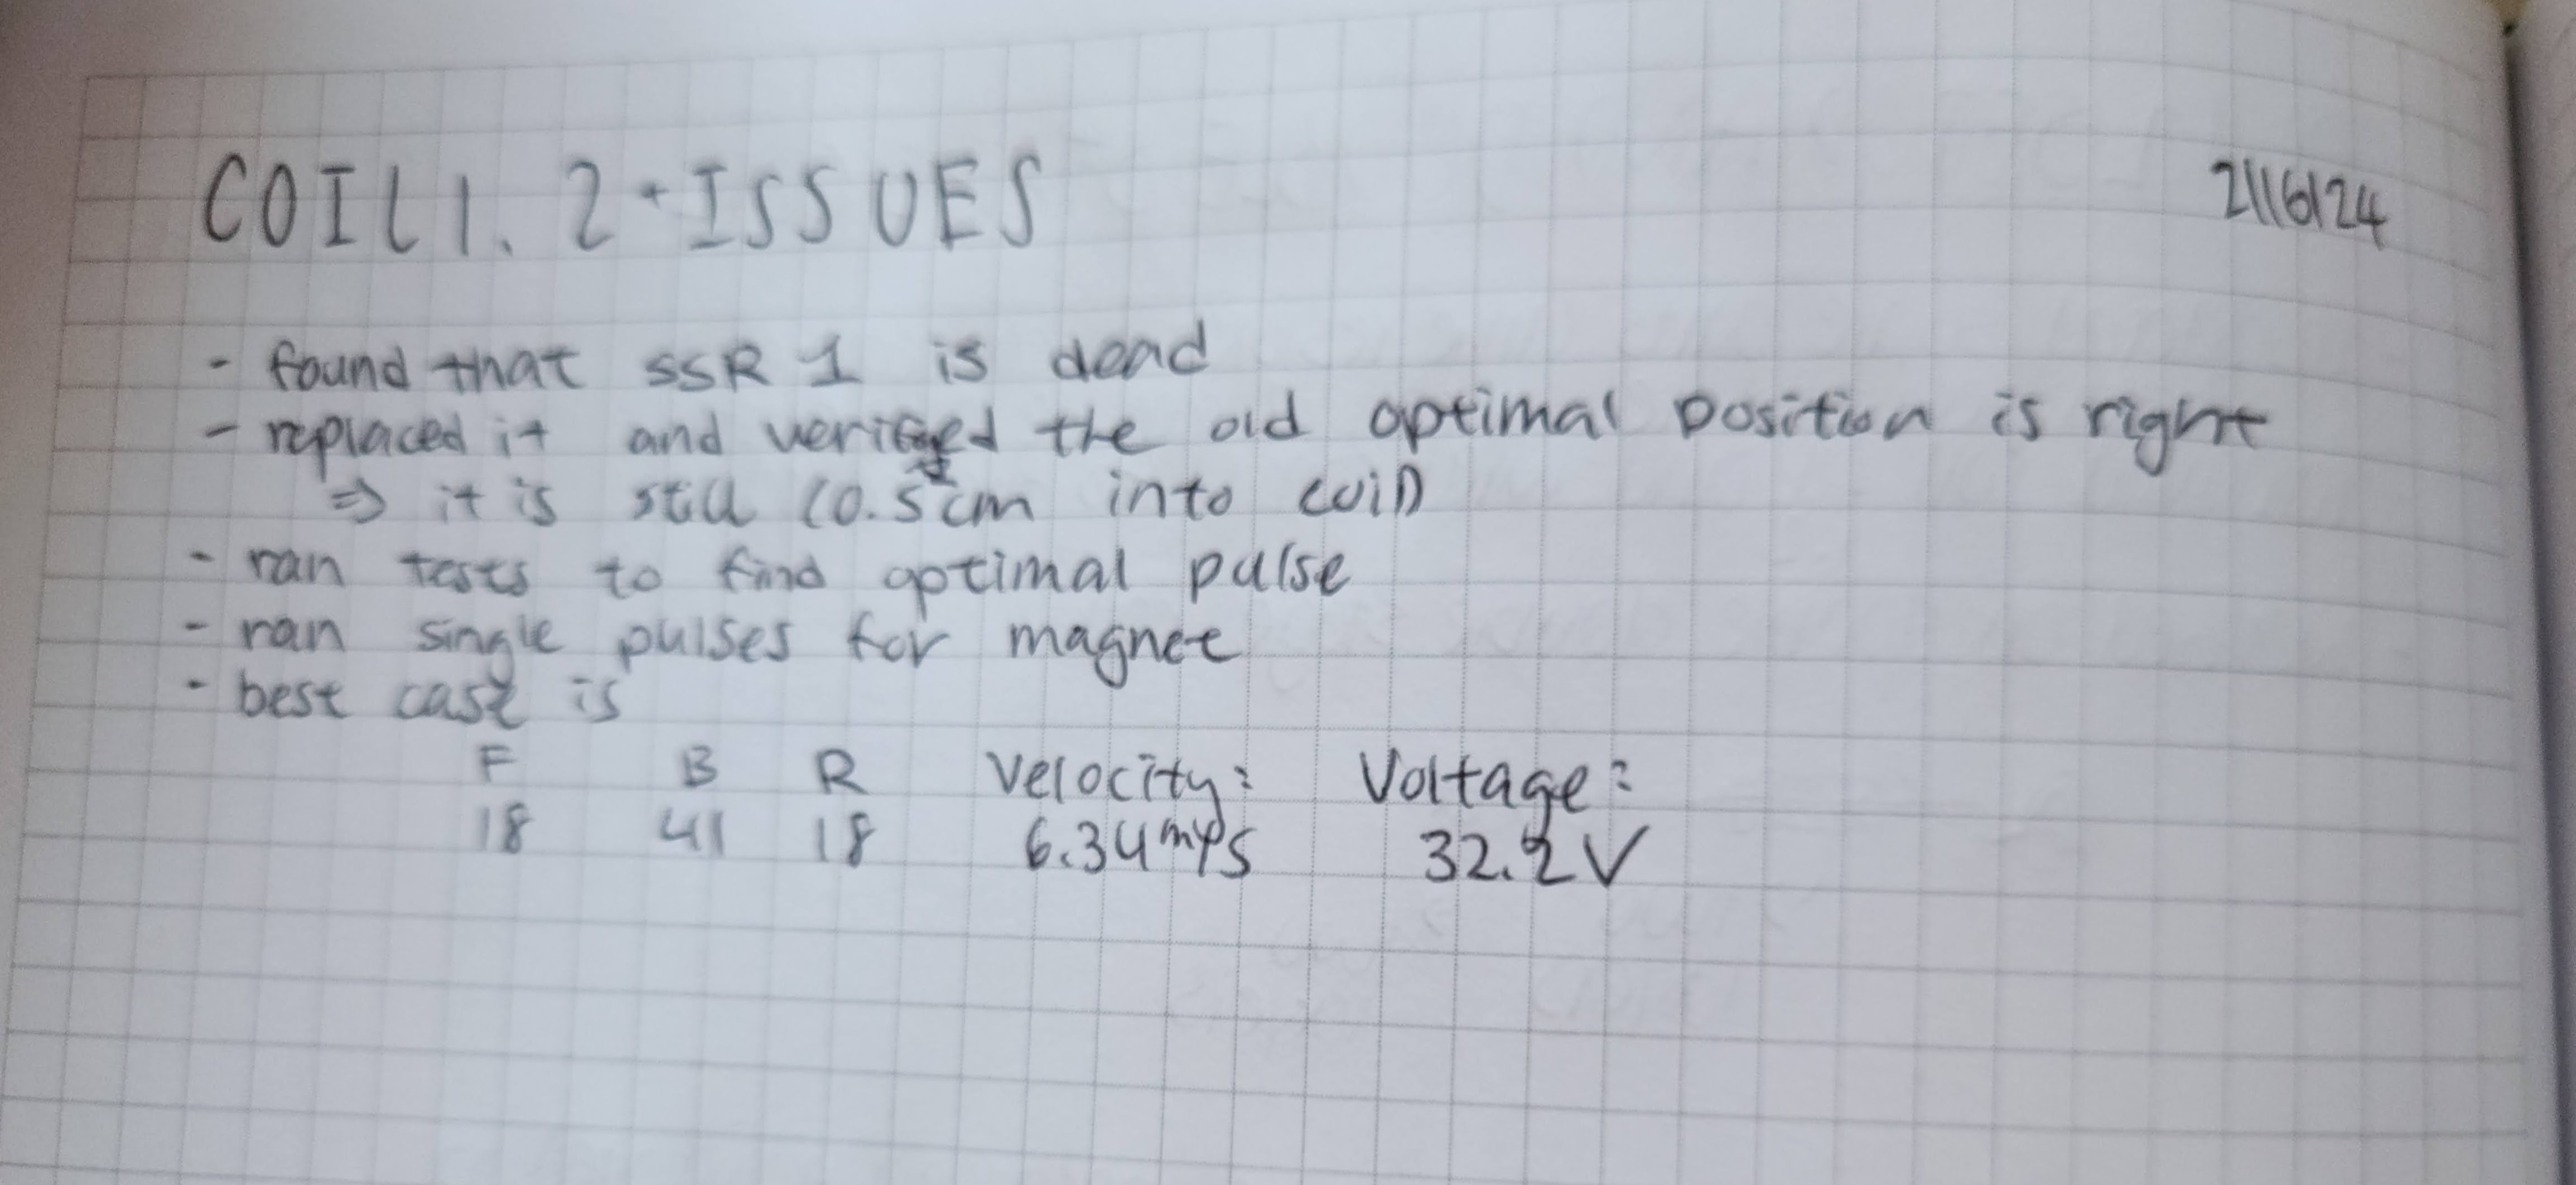 COIL1.2-ISSUES
2/16/24
- found that SSR 1 is dead
- replaced it and verified the old optimal position is right
⇒ it is still 10.5cm into coil
- ran tests to find optimal pulse
- ran single pulses for magnet
- best case is
F B R Velocity: Voltage:
18 41 18 6.34mps 32.2V